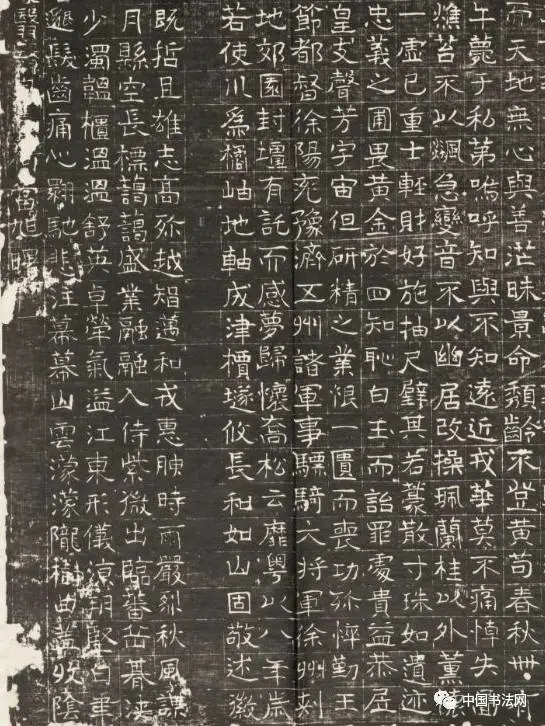 而天地無心與善茫昧景命頹齡不登黃苟春秋卌有
午薨于私第嗚呼知與不知遠近戎華莫不痛悼失圖
苔不以飆急變音不以幽居改操珮蘭桂以外薰
一虛已重士輕財好施抽尺璧其若篆散寸珠如遺迹
忠義之圃畏黃金於四知恥白玉而詒罪處貴益恭居
皇支聲芳宇宙但研精之業恨一匱而喪功弥悴勤王
節都督徐陽兗豫濟五州諸軍事驃騎大將軍徐州刾
地郊園封壇有託而感夢歸懷喬松云靡粵以八年歲
若使川為檣岫地軸成津櫝墜攸長和如山固敬述徽
既哲且雄志高弥越智邁和戎惠融時雨嚴烈秋風
月縣空長標譪譪盛業融融入侍紫微出臨蕃岳朞浹
少濁韞櫃溫溫舒英卓犖氣溢江東形儀凉朔堅白
髮齒痛心翾馳悲注幕幕山雲濛濛隴樹曲盖收陰
中国书法网